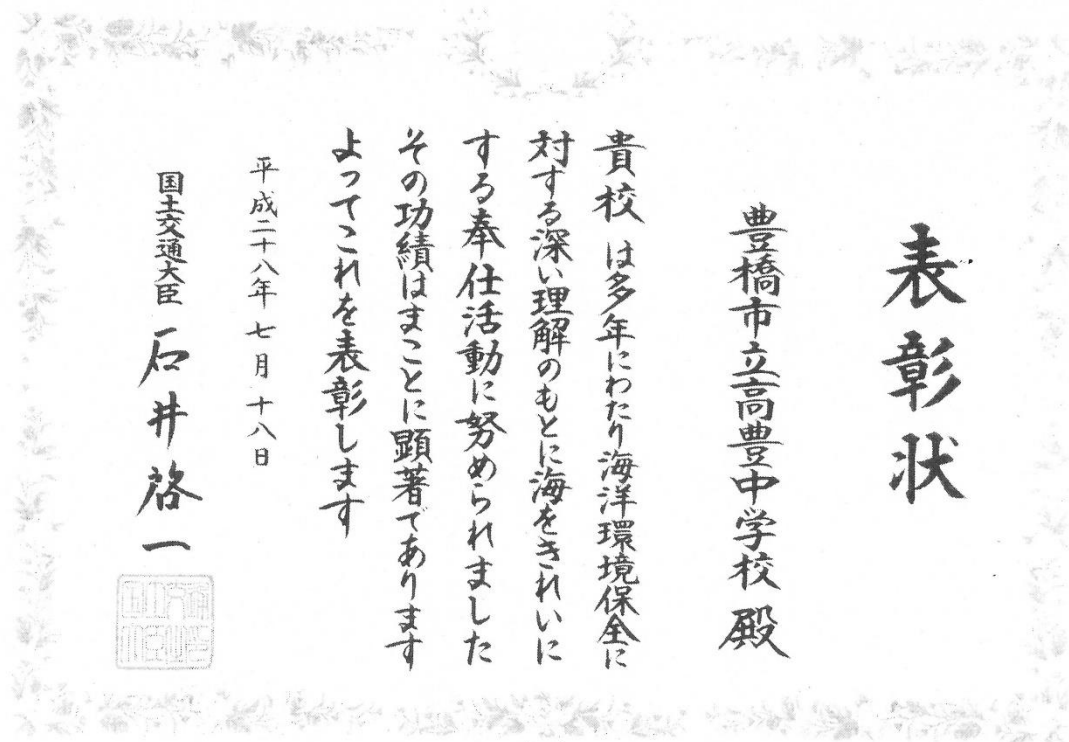 表彰状
豊橋市立高豊中学校 殿
貴校 は多年にわたり海洋環境保全に
対する深い理解のもとに海をきれいに
する奉仕活動に努められました
その功績はまことに顕著であります
よってこれを表彰します
平成二十八年七月十八日
国土交通大臣 石井啓一